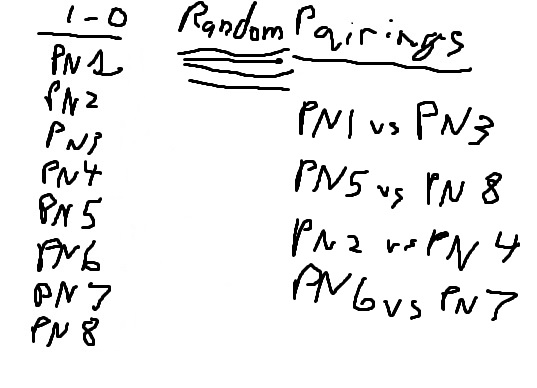 1-0
PN1
PN2
PN3
PN4
PN5
PN6
PN7
PN8
Random Pairings
PN1 vs PN3
PN5 vs PN 8
PN2 vs PN 4
PN6 vs PN7